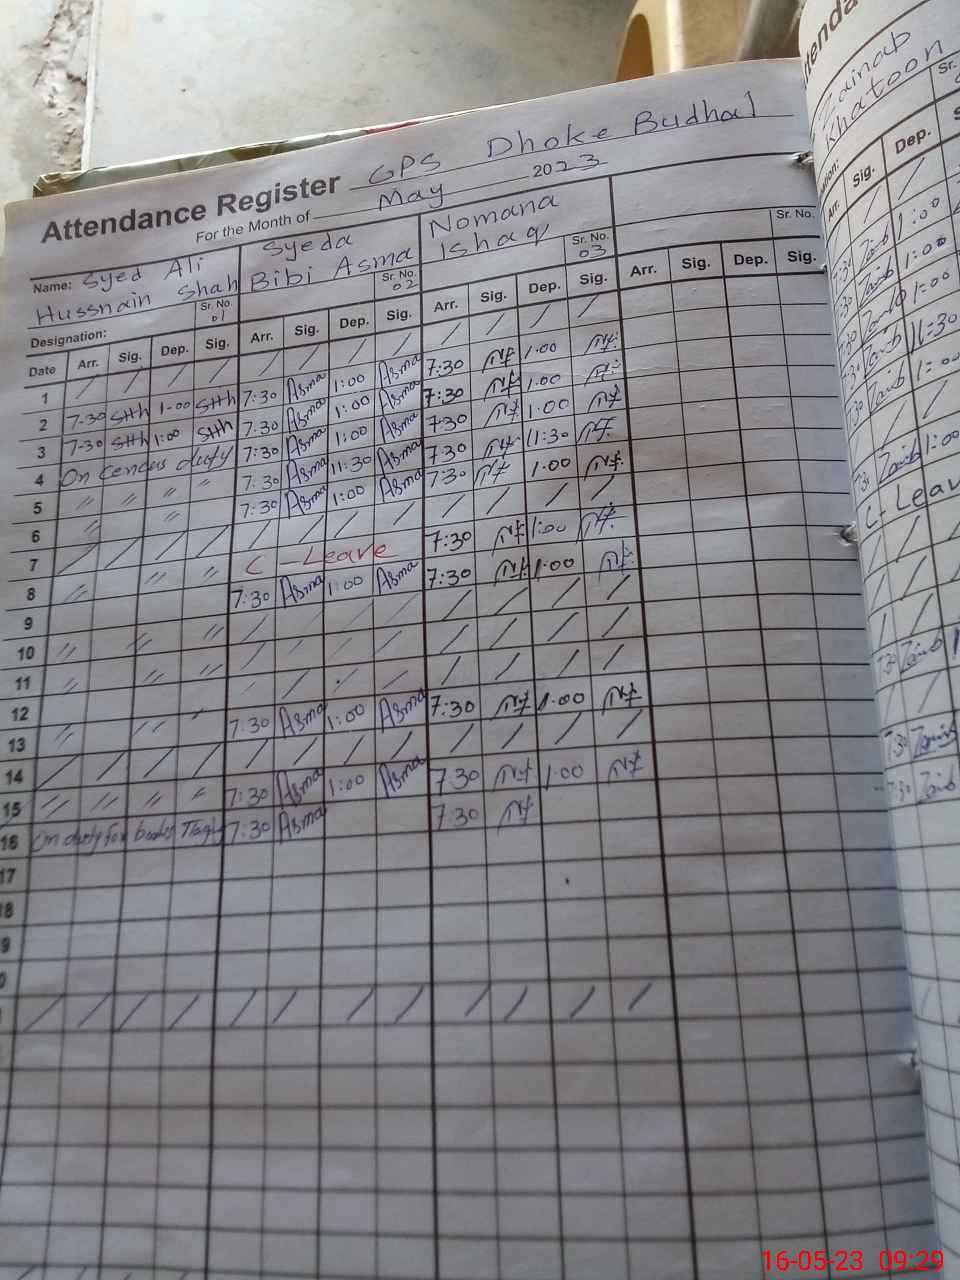 Attendance Register GPS Dhoke Budhal
For the Month of May 2023
Name: Syed Ali Hussnain Shah Sr. No. 01
Syeda Bibi Asma Sr. No. 02
Nomana Ishaq Sr. No. 03
Sr. No.
Designation:
Date Arr. Sig. Dep. Sig. Arr. Sig. Dep. Sig. Arr. Sig. Dep. Sig. Arr. Sig. Dep. Sig.
1 / / / / / / / / / / / /
2 7:30 SHh 1:00 SHh 7:30 Asma 1:00 Asma 7:30 1:00
3 7:30 SHh 1:00 SHh 7:30 Asma 1:00 Asma 7:30 1:00
4 On cencus duty 7:30 Asma 1:00 Asma 7:30 1:00
5 " " " " 7:30 Asma 11:30 Asma 7:30 11:30
6 " " 7:30 Asma 1:00 Asma 7:30 1:00
7 / / / / / / / / / / / /
8 " " " C - Leave 7:30 1:00
9 7:30 Asma 1:00 Asma 7:30 1:00
10 " " " / / / / / / / /
11 " " " / / / / / / / /
12 " " " / / / / / / /
13 7:30 Asma 1:00 Asma 7:30 1:00
14 / / / / / / / / / / / /
15 " " " " 7:30 Asma 1:00 Asma 7:30 1:00
16 On duty for books 7:30 Asma 7:30
17
18
9
0
/ / / / / / / / / / / /
Zainab
Khatoon
Sr.
Arr. Sig. Dep.
1:00
1:00
1:00
11:30
1:00
1:00
C - Leave
16-05-23 09:29